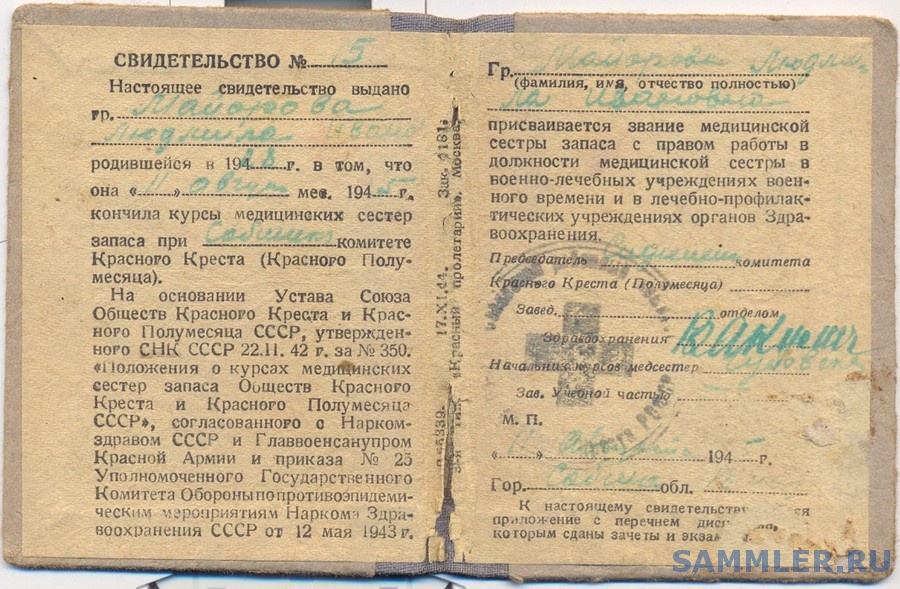 СВИДЕТЕЛЬСТВО № 5
Настоящее свидетельство выдано
гр. Майорова
Людмила Ивано
родившейся в 194 г. в том, что
она « 11 » август мес. 1945 г.
кончила курсы медицинских сестер
запаса при комитете
Красного Креста (Красного Полу-
месяца).
На основании Устава Союза
Обществ Красного Креста и Крас-
ного Полумесяца СССР, утвержден-
ного СНК СССР 22.11. 42 г. за № 350.
«Положения о курсах медицинских
сестер запаса Обществ Красного
Креста и Красного Полумесяца
СССР», согласованного с Нарком-
здравом СССР и Главвоенсанупром
Красной Армии и приказа № 25
Уполномоченного Государственного
Комитета Обороны по противоэпидеми-
ческим мероприятиям Наркома Здра-
воохранения СССР от 12 мая 1943 г.
17.XI.44. Зак. 2181.
«Красный пролетарий». Москва,
Гр. Майорова Людми-
(фамилия, имя, отчество полностью)
ла Ивановна
присваивается звание медицинской
сестры запаса с правом работы в
должности медицинской сестры в
военно-лечебных учреждениях воен-
ного времени и в лечебно-профилак-
тических учреждениях органов Здра-
воохранения.
Председатель комитета
Красного Креста (Полумесяца)
Завед. отделом
Здравоохранения
Начальник курсов медсестер
Зав. Учебной частью
М. П.
РСФСР
« 11 » 1945 г.
Гор. обл.
К настоящему свидетельству
приложение с перечнем
которым сданы зачеты и
SAMMLER.RU